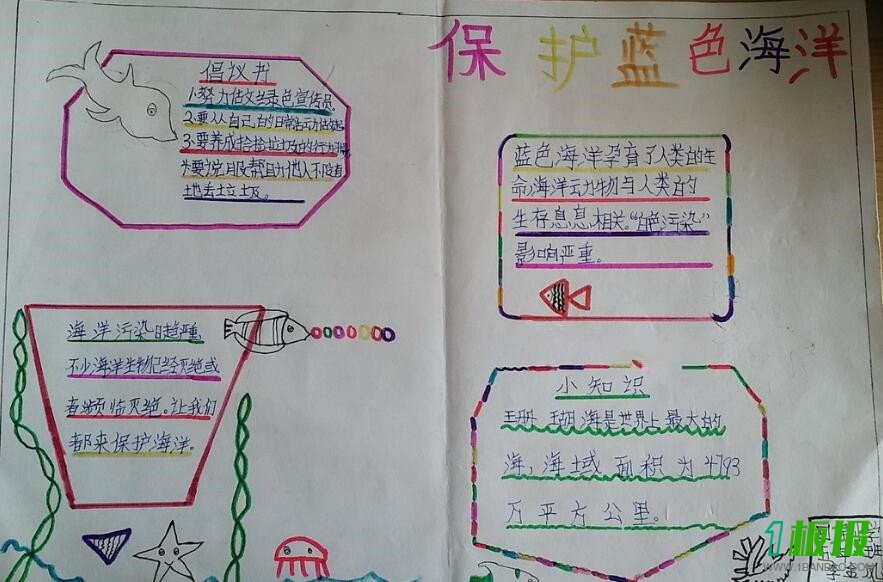 保护蓝色海洋
倡议书
1.努力估文绿色宣传员。
2.要从自己的日常活动估起
3.要养成捡捡垃圾的行为
4.要说服帮助他人不随
地丢垃圾
蓝色海洋孕育了人类的生
命,海洋动物与人类的
生存息息相关。“白色污染”
影响严重。
海洋污染日趋严重
不少海洋生物已经灭绝或
者濒临灭绝。让我们
都来保护海洋。
小知识
珊瑚海是世界上最大的
海,海域面积为4793
万平方公里。
1板报
WWW.1BANBAO.COM